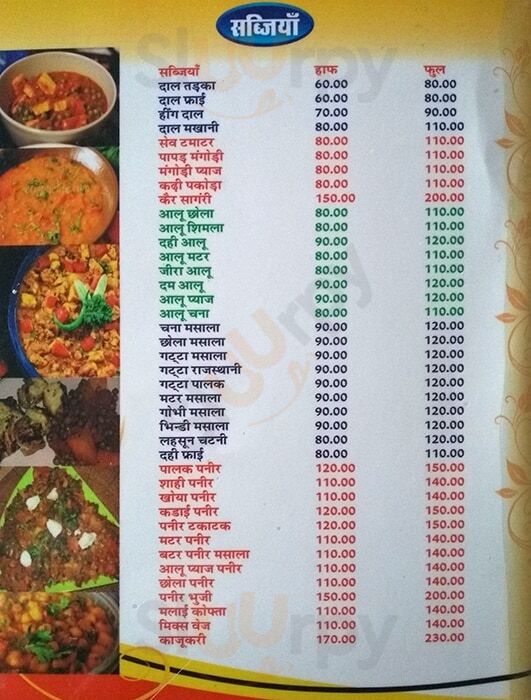 सब्जियाँ
सब्जियाँ हाफ फुल
दाल तड़का 60.00 80.00
दाल फ्राई 60.00 80.00
हींग दाल 70.00 90.00
दाल मखानी 80.00 110.00
सेव टमाटर 80.00 110.00
पापड़ मंगोड़ी 80.00 110.00
मंगोड़ी प्याज 80.00 110.00
कढ़ी पकोड़ा 80.00 110.00
कैर सागंरी 150.00 200.00
आलू छोला 80.00 110.00
आलू शिमला 80.00 110.00
दही आलू 90.00 120.00
आलू मटर 80.00 110.00
जीरा आलू 80.00 110.00
दम आलू 90.00 120.00
आलू प्याज 90.00 120.00
आलू चना 80.00 110.00
चना मसाला 90.00 120.00
छोला मसाला 90.00 120.00
गट्टा मसाला 90.00 120.00
गट्टा राजस्थानी 90.00 120.00
गट्टा पालक 90.00 120.00
मटर मसाला 90.00 120.00
गोभी मसाला 90.00 120.00
भिन्डी मसाला 90.00 120.00
लहसून चटनी 80.00 120.00
दही फ्राई 80.00 110.00
पालक पनीर 120.00 150.00
शाही पनीर 110.00 140.00
खोया पनीर 110.00 140.00
कडाई पनीर 120.00 150.00
पनीर टकाटक 120.00 150.00
मटर पनीर 110.00 140.00
बटर पनीर मसाला 110.00 140.00
आलू प्याज पनीर 110.00 140.00
छोला पनीर 110.00 140.00
पनीर भुजी 150.00 200.00
मलाई कोफ्ता 110.00 140.00
मिक्स वेज 110.00 140.00
काजूकरी 170.00 230.00